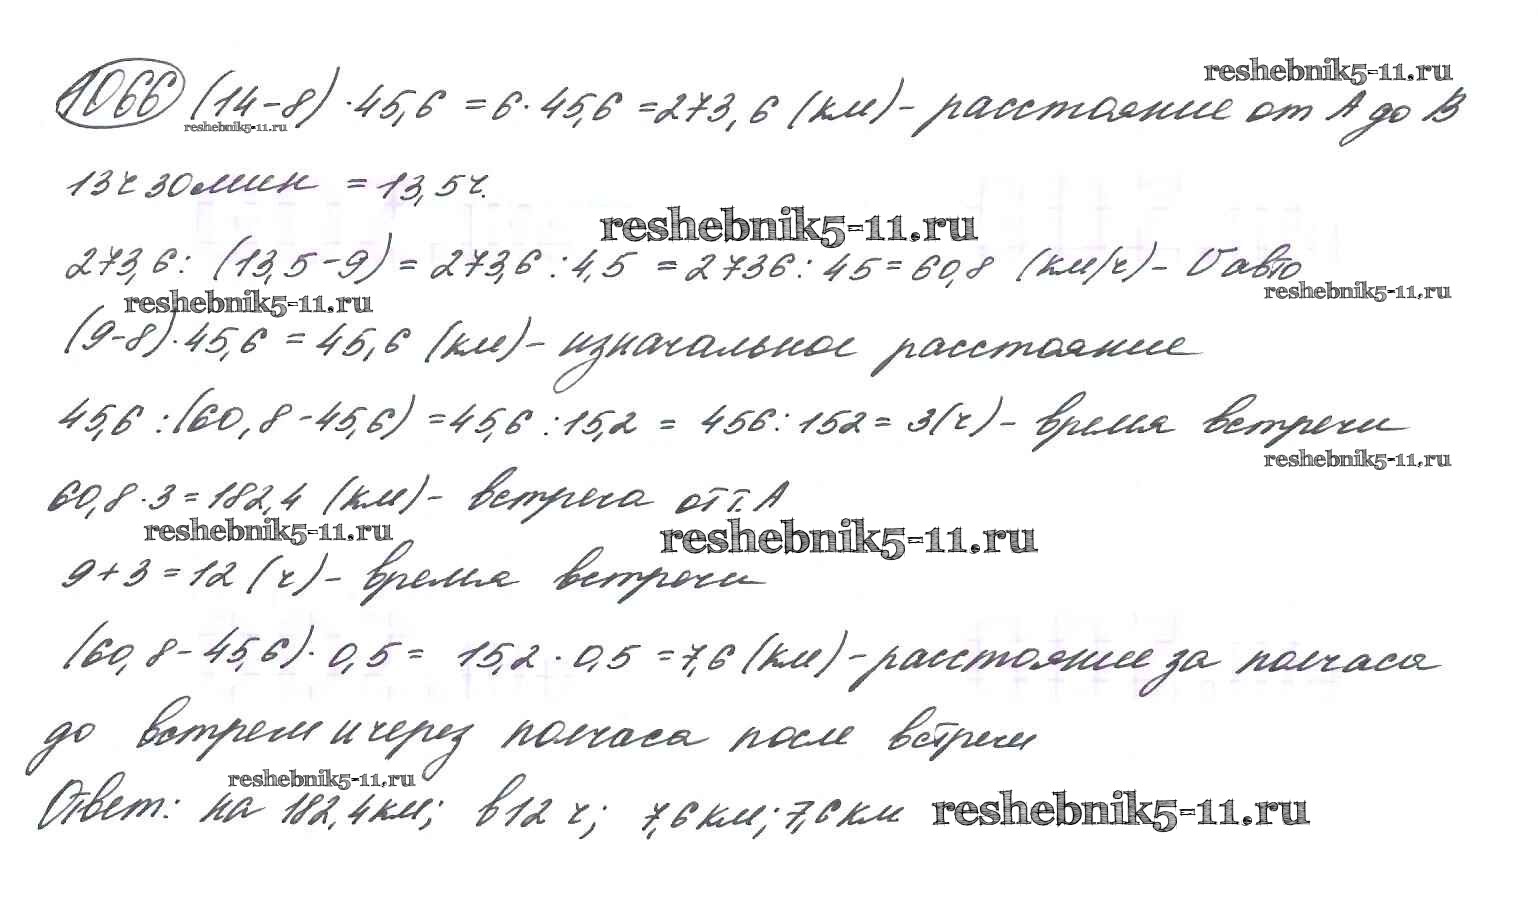 reshebnik5-11.ru
1066 (14-8)·45,6 =6·45,6 =273,6 (км)- расстояние от А до В
reshebnik5-11.ru
13ч 30мин = 13,5ч.
reshebnik5-11.ru
273,6: (13,5-9) = 273,6:4,5 =2736:45=60,8 (км/ч)- V авто
reshebnik5-11.ru
reshebnik5-11.ru
(9-8)·45,6 = 45,6 (км)- изначальное расстояние
45,6 :(60,8-45,6) =45,6 :15,2 = 456:152= 3(ч)- время встречи
reshebnik5-11.ru
60,8·3=182,4 (км)- встреча от т. А
reshebnik5-11.ru
reshebnik5-11.ru
9+3=12 (ч)- время встречи
(60,8-45,6)· 0,5= 15,2·0,5 =7,6 (км)-расстояние за полчаса
до встречи и через полчаса после встречи
reshebnik5-11.ru
Ответ: на 182,4км; в 12 ч; 7,6 км; 7,6 км
reshebnik5-11.ru